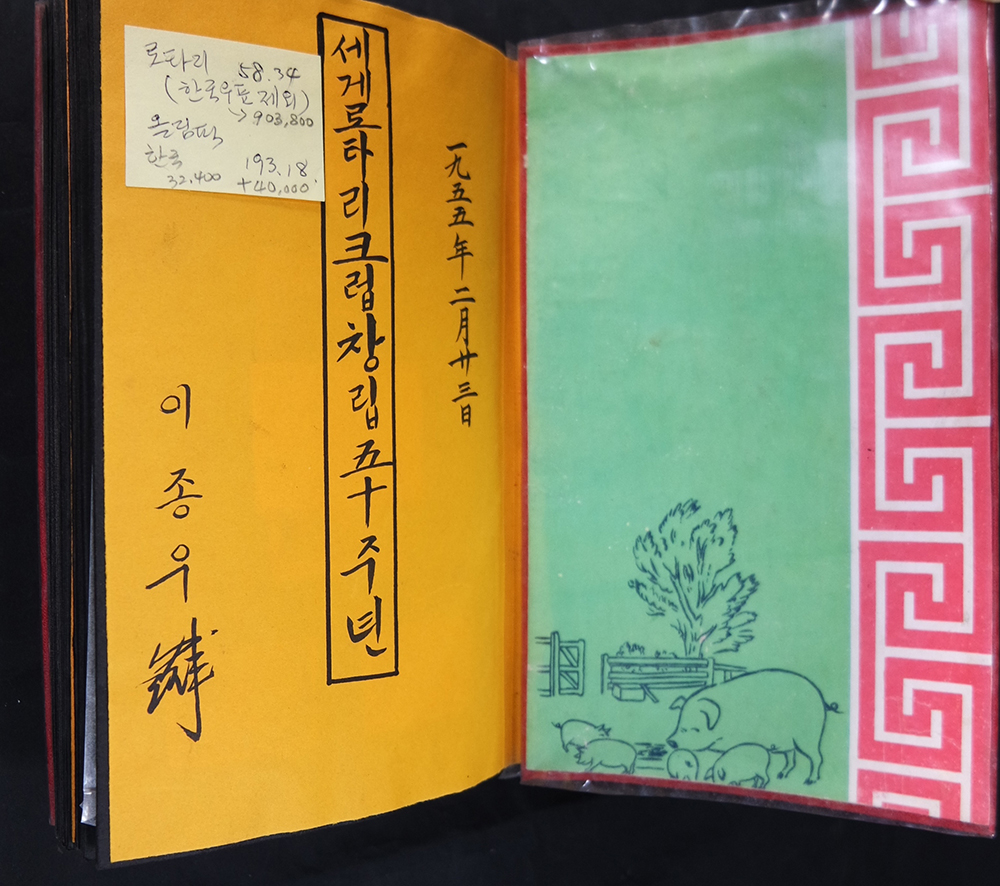 로타리 58.34
(한국우표 제외)
→ 903,800
올림픽
한국 193.18
32,400 +40,000
세게로타리크럽창립五十주년
一九五五年 二月 廿三日
이종우